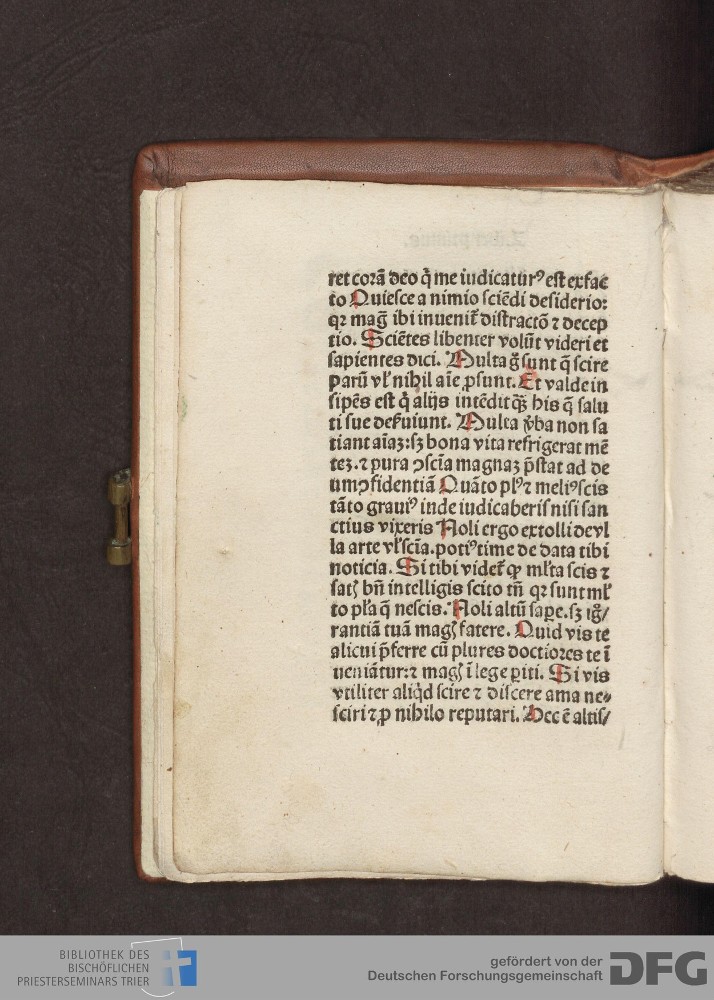 ret corā deo q̄ me iudicaturꝰ est ex fac
to Quiesce a nimio sciēdi desiderio:
qꝛ mag̅ ibi inuenit̄ distractō ⁊ decep
tio. Sciētes libenter volūt videri et
sapientes dici. Multa g̊ sunt q̄ scire
parū vl̓ nihil aīe ꝓsunt. Et valde in
sipēs est q̇ alijs intēdit qȝ̄ his q̄ salu
ti sue deẜuiunt. Multa v̾ba non sa
tiant aīaꝫ: sꝫ bona vita refrigerat mē
teꝫ. ⁊ pura ↄscīa magnaꝫ p̄stat ad de
um ↄfidentiā Quāto plꝰ ⁊ meliꝰ scis
tāto grauiꝰ inde iudicaberis nisi san
ctius vixeris Noli ergo extolli de vl
la arte vl̓ scīa. potiꝰ time de data tibi
noticia. Si tibi videt̄ ꝙ ml̓ta scis ⁊
satꝭ bn̄ intelligis scito tn̄ qꝛ sunt ml̓
to pl̓a q̄ nescis. Noli altū saꝑe. sꝫ ig̊/
rantiā tuā magꝭ fatere. Quid vis te
alicui p̄ferre cū plures doctiores te ī
ueniātur: ⁊ magꝭ ī lege ꝑiti. Si vis
vtiliter aliq̇d scire ⁊ discere ama ne⸗
sciri ⁊ ꝓ nihilo reputari. Hec ē altis/
BIBLIOTHEK DES
BISCHÖFLICHEN
PRIESTERSEMINARS TRIER
gefördert von der
Deutschen Forschungsgemeinschaft
DFG